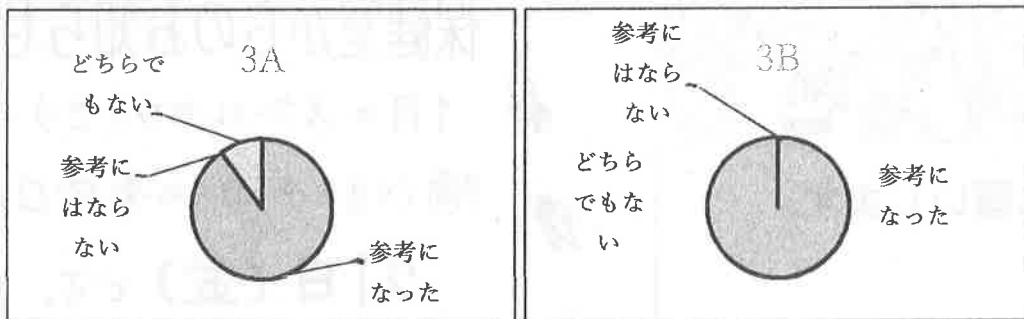 3A
どちらで
もない
参考に
はなら
ない
参考に
なった
3B
参考に
はなら
ない
どちら
でもな
い
参考に
なった